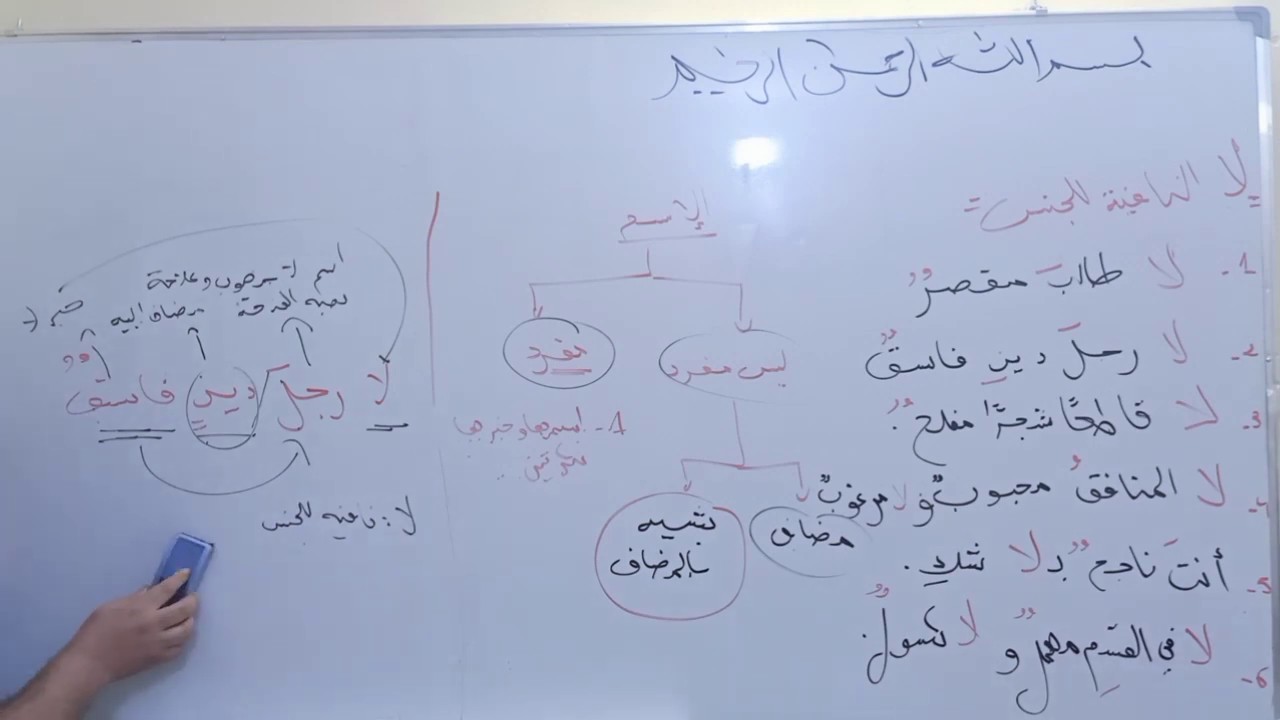 بسم الله الرحمن الرحيم
لا النافية للجنس
1- لا طالبَ مقصرٌ
2- لا رجلَ دينٍ فاسقٌ
3- لا قاطعًا شجرًا مفلحٌ.
4- لا المنافقُ محبوبٌ و لا مرغوبٌ
5- أنتَ ناجحٌ بلا شكٍ.
6- لا في القسمِ مهملٌ و لا كسولٌ.
الإسم
ليس مفرد
مفرد
مضاف
شبيه بالمضاف
1- اسمها وخبرها
نكرتين..
اسم لا منصوب وعلامة
نصبه الفتحة
مضاف إليه
خبر لا
لا رجلَ دينٍ فاسقٌ
لا: نافية للجنس